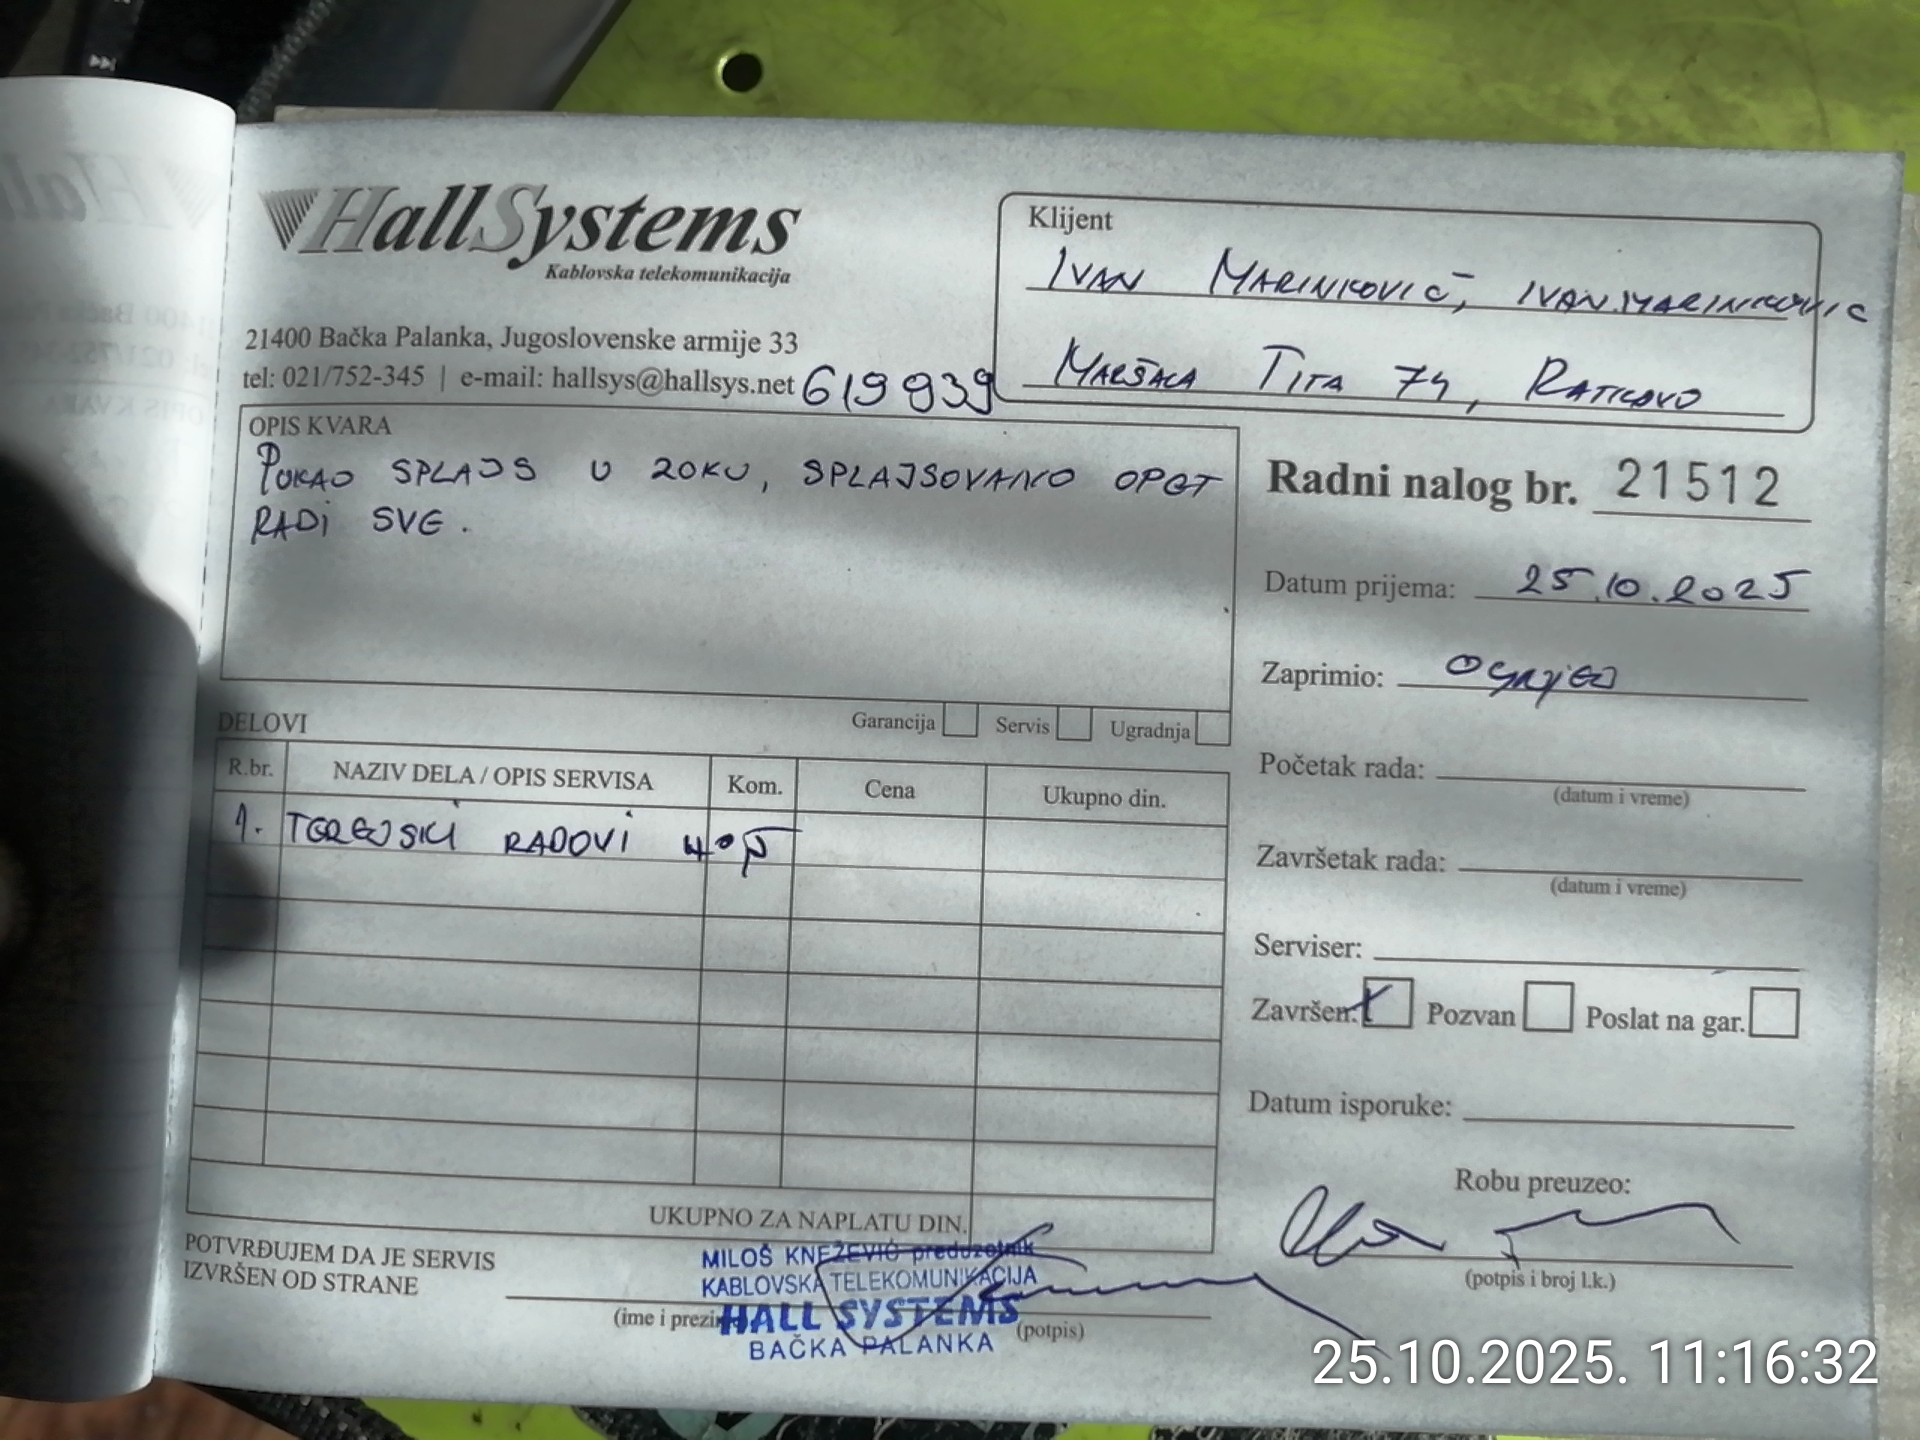 HallSystems
Kablovska telekomunikacija
21400 Bačka Palanka, Jugoslovenske armije 33
tel: 021/752-345 | e-mail: hallsys@hallsys.net 619939
Klijent
IVAN MARINKOVIĆ, IVAN.MARINKOVIC
MARŠALA TITA 74, RATKOVO
OPIS KVARA
PUKAO SPLAJS U ZOKU, SPLAJSOVANO OPET
RADI SVE.
Radni nalog br. 21512
Datum prijema: 25.10.2025
Zaprimio: OGNJEN
Početak rada:
(datum i vreme)
Završetak rada:
(datum i vreme)
Serviser:
Završen: Pozvan Poslat na gar.
Datum isporuke:
Robu preuzeo:
(potpis i broj l.k.)
DELOVI Garancija Servis Ugradnja
R.br. NAZIV DELA / OPIS SERVISA Kom. Cena Ukupno din.
1. TERENSKI RADOVI
UKUPNO ZA NAPLATU DIN.
POTVRĐUJEM DA JE SERVIS
IZVRŠEN OD STRANE
(ime i prezi
(potpis)
MILOŠ KNEŽEVIĆ preduzetnik
KABLOVSKA TELEKOMUNIKACIJA
HALL SYSTEMS
BAČKA PALANKA
25.10.2025. 11:16:32